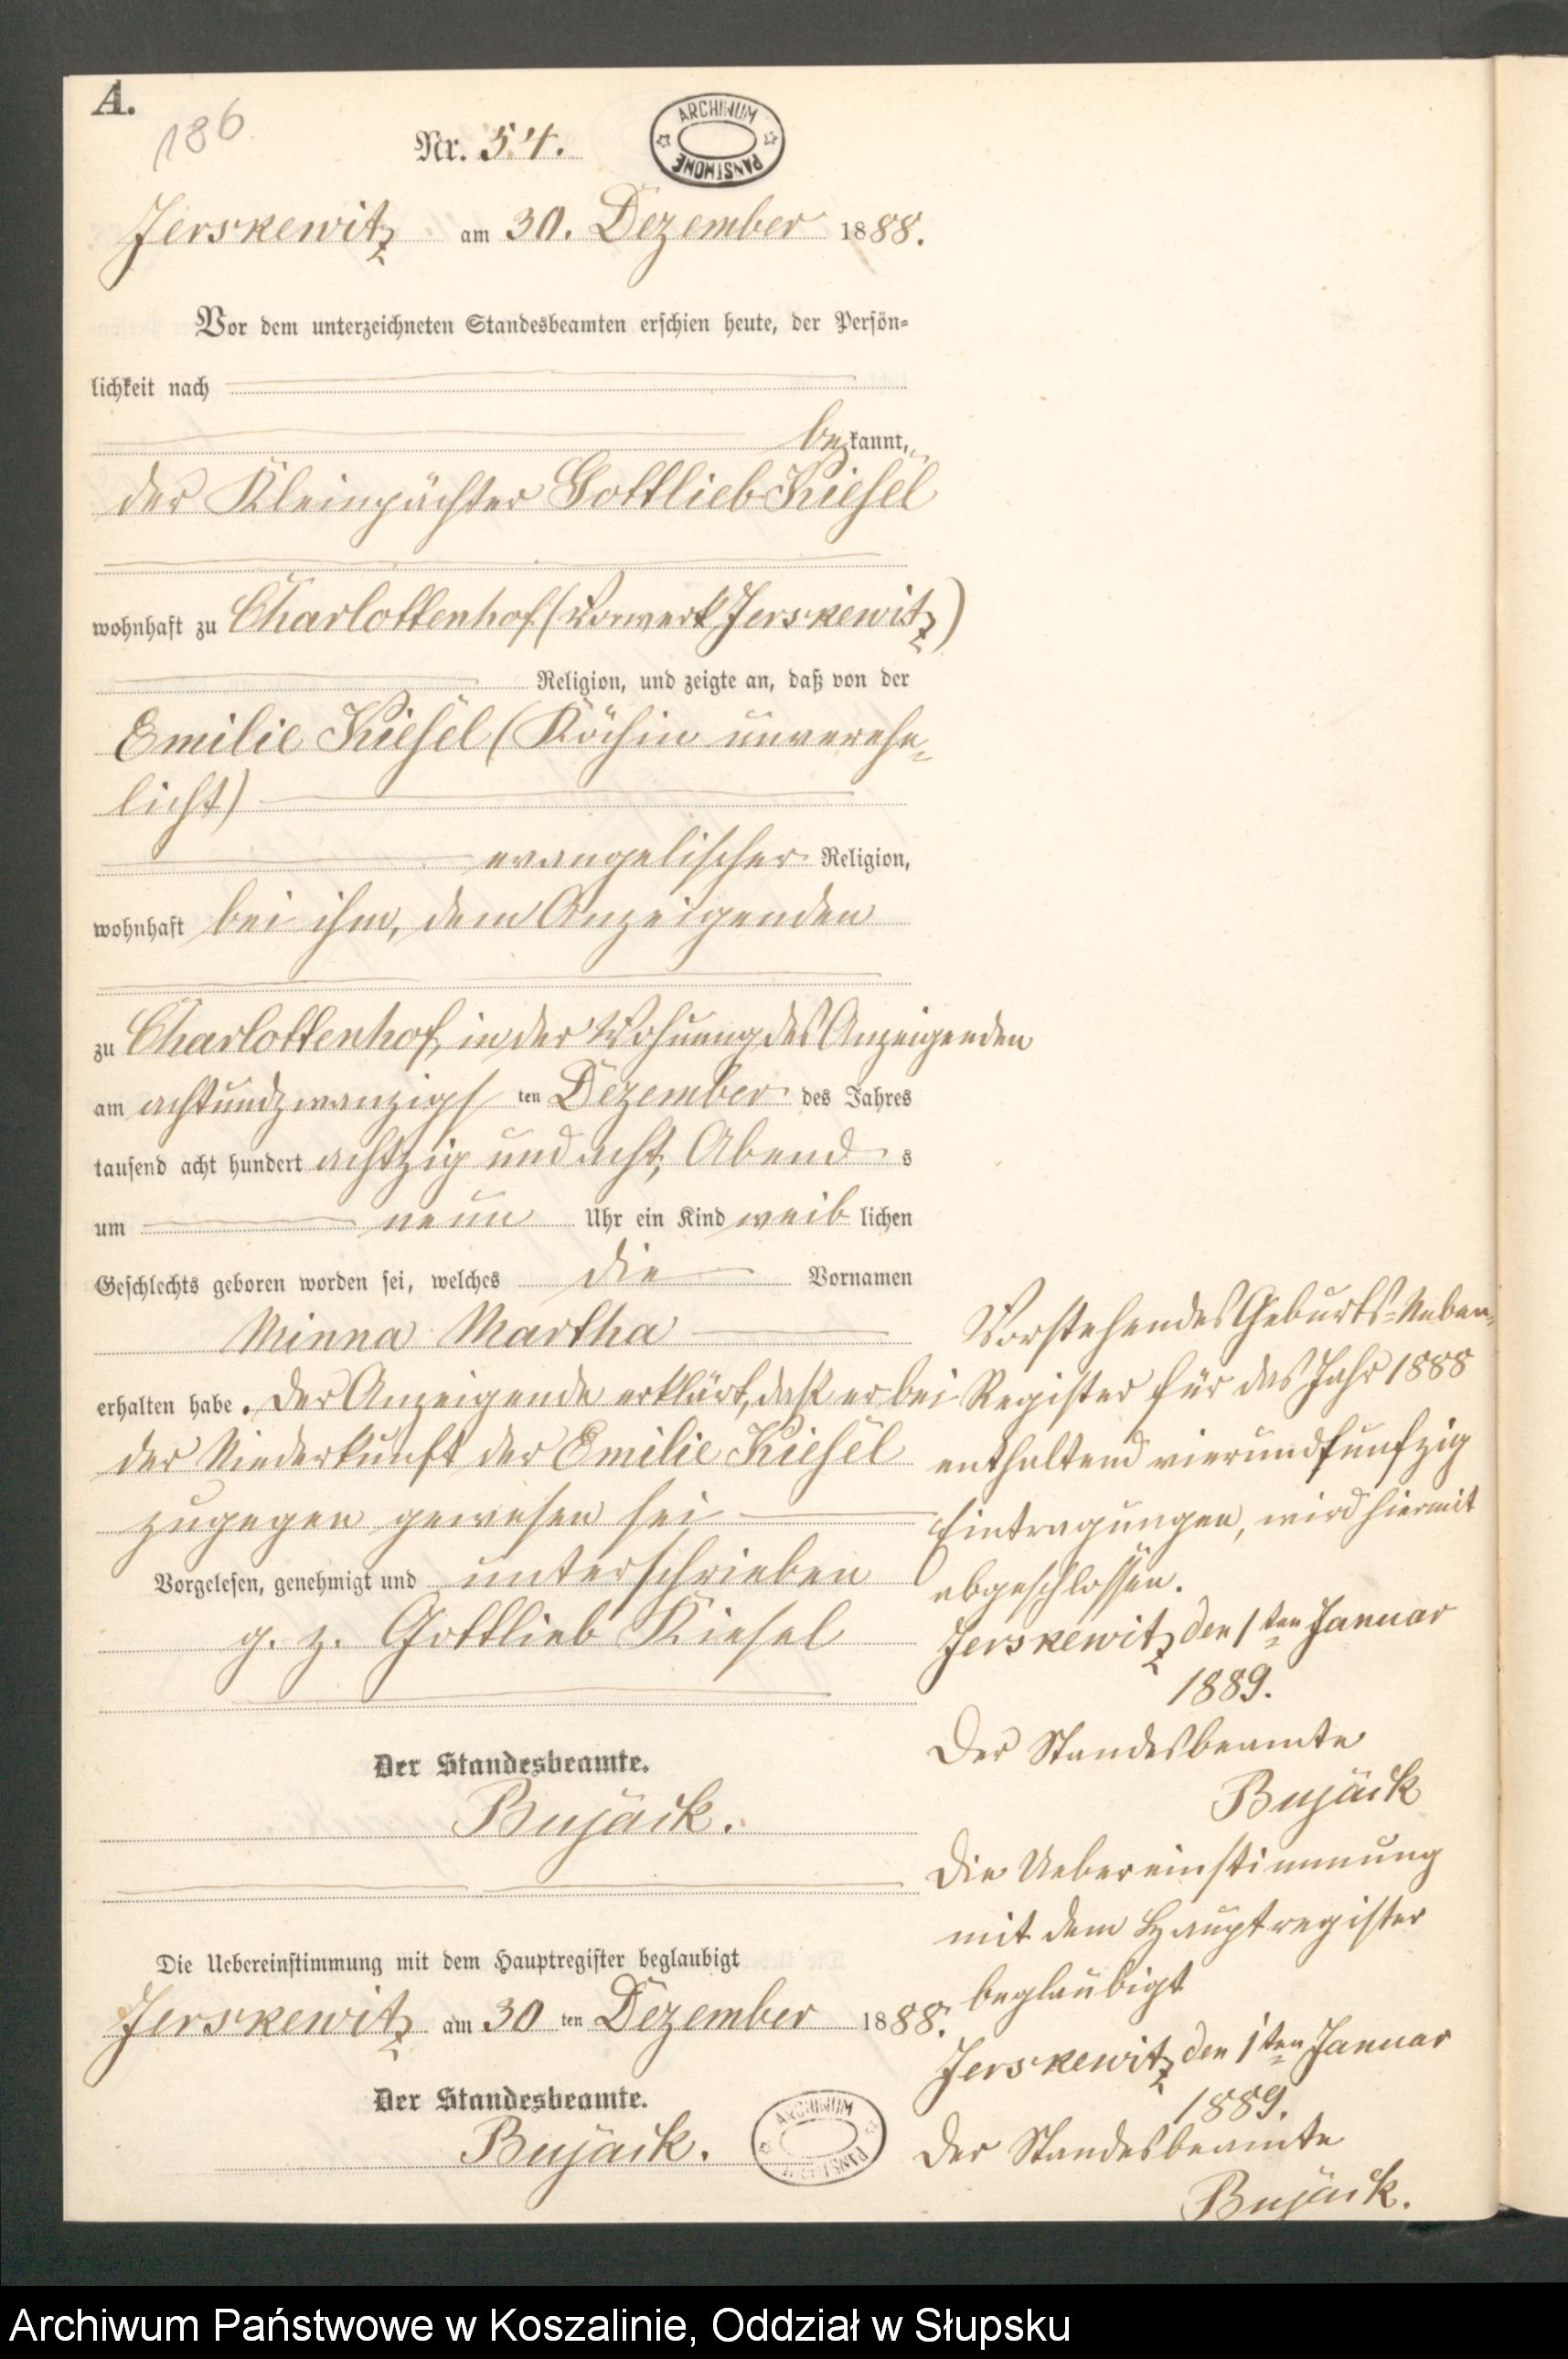 A.
186
Nr. 54.
ARCHIWUM PAŃSTWOWE
Jerskewitz am 30. Dezember 1888.
Vor dem unterzeichneten Standesbeamten erschien heute, der Persön-
lichkeit nach
bekannt,
der Kleinpächter Gottlieb Kiesel
wohnhaft zu Charlottenhof (Vorwerk Jerskewitz)
Religion, und zeigte an, daß von der
Emilie Kiesel (Köchin unverehe-
licht)
evangelischer Religion,
wohnhaft bei ihm, dem Anzeigenden
zu Charlottenhof, in der Wohnung des Anzeigenden
am achtundzwanzigsten Dezember des Jahres
tausend acht hundert achtzig und acht, Abends
um neun Uhr ein Kind weiblichen
Geschlechts geboren worden sei, welches die Vornamen
Minna Martha
erhalten habe. Der Anzeigende erklärt, daß er bei
der Niederkunft der Emilie Kiesel
zugegen gewesen sei
Vorgelesen, genehmigt und unterschrieben
g. z. Gottlieb Kiesel
Der Standesbeamte.
Bujäck.
Die Uebereinstimmung mit dem Hauptregister beglaubigt
Jerskewitz am 30ten Dezember 1888.
Der Standesbeamte.
Bujäck.
ARCHIWUM PAŃSTWOWE
Vorstehendes Geburts-Neben-
Register für das Jahr 1888
enthaltend vierundfunfzig
Eintragungen, wird hiermit
abgeschlossen.
Jerskewitz den 1ten Januar
1889.
Der Standesbeamte
Bujäck
Die Uebereinstimmung
mit dem Hauptregister
beglaubigt
Jerskewitz den 1ten Januar
1889.
Der Standesbeamte
Bujäck.
Archiwum Państwowe w Koszalinie, Oddział w Słupsku